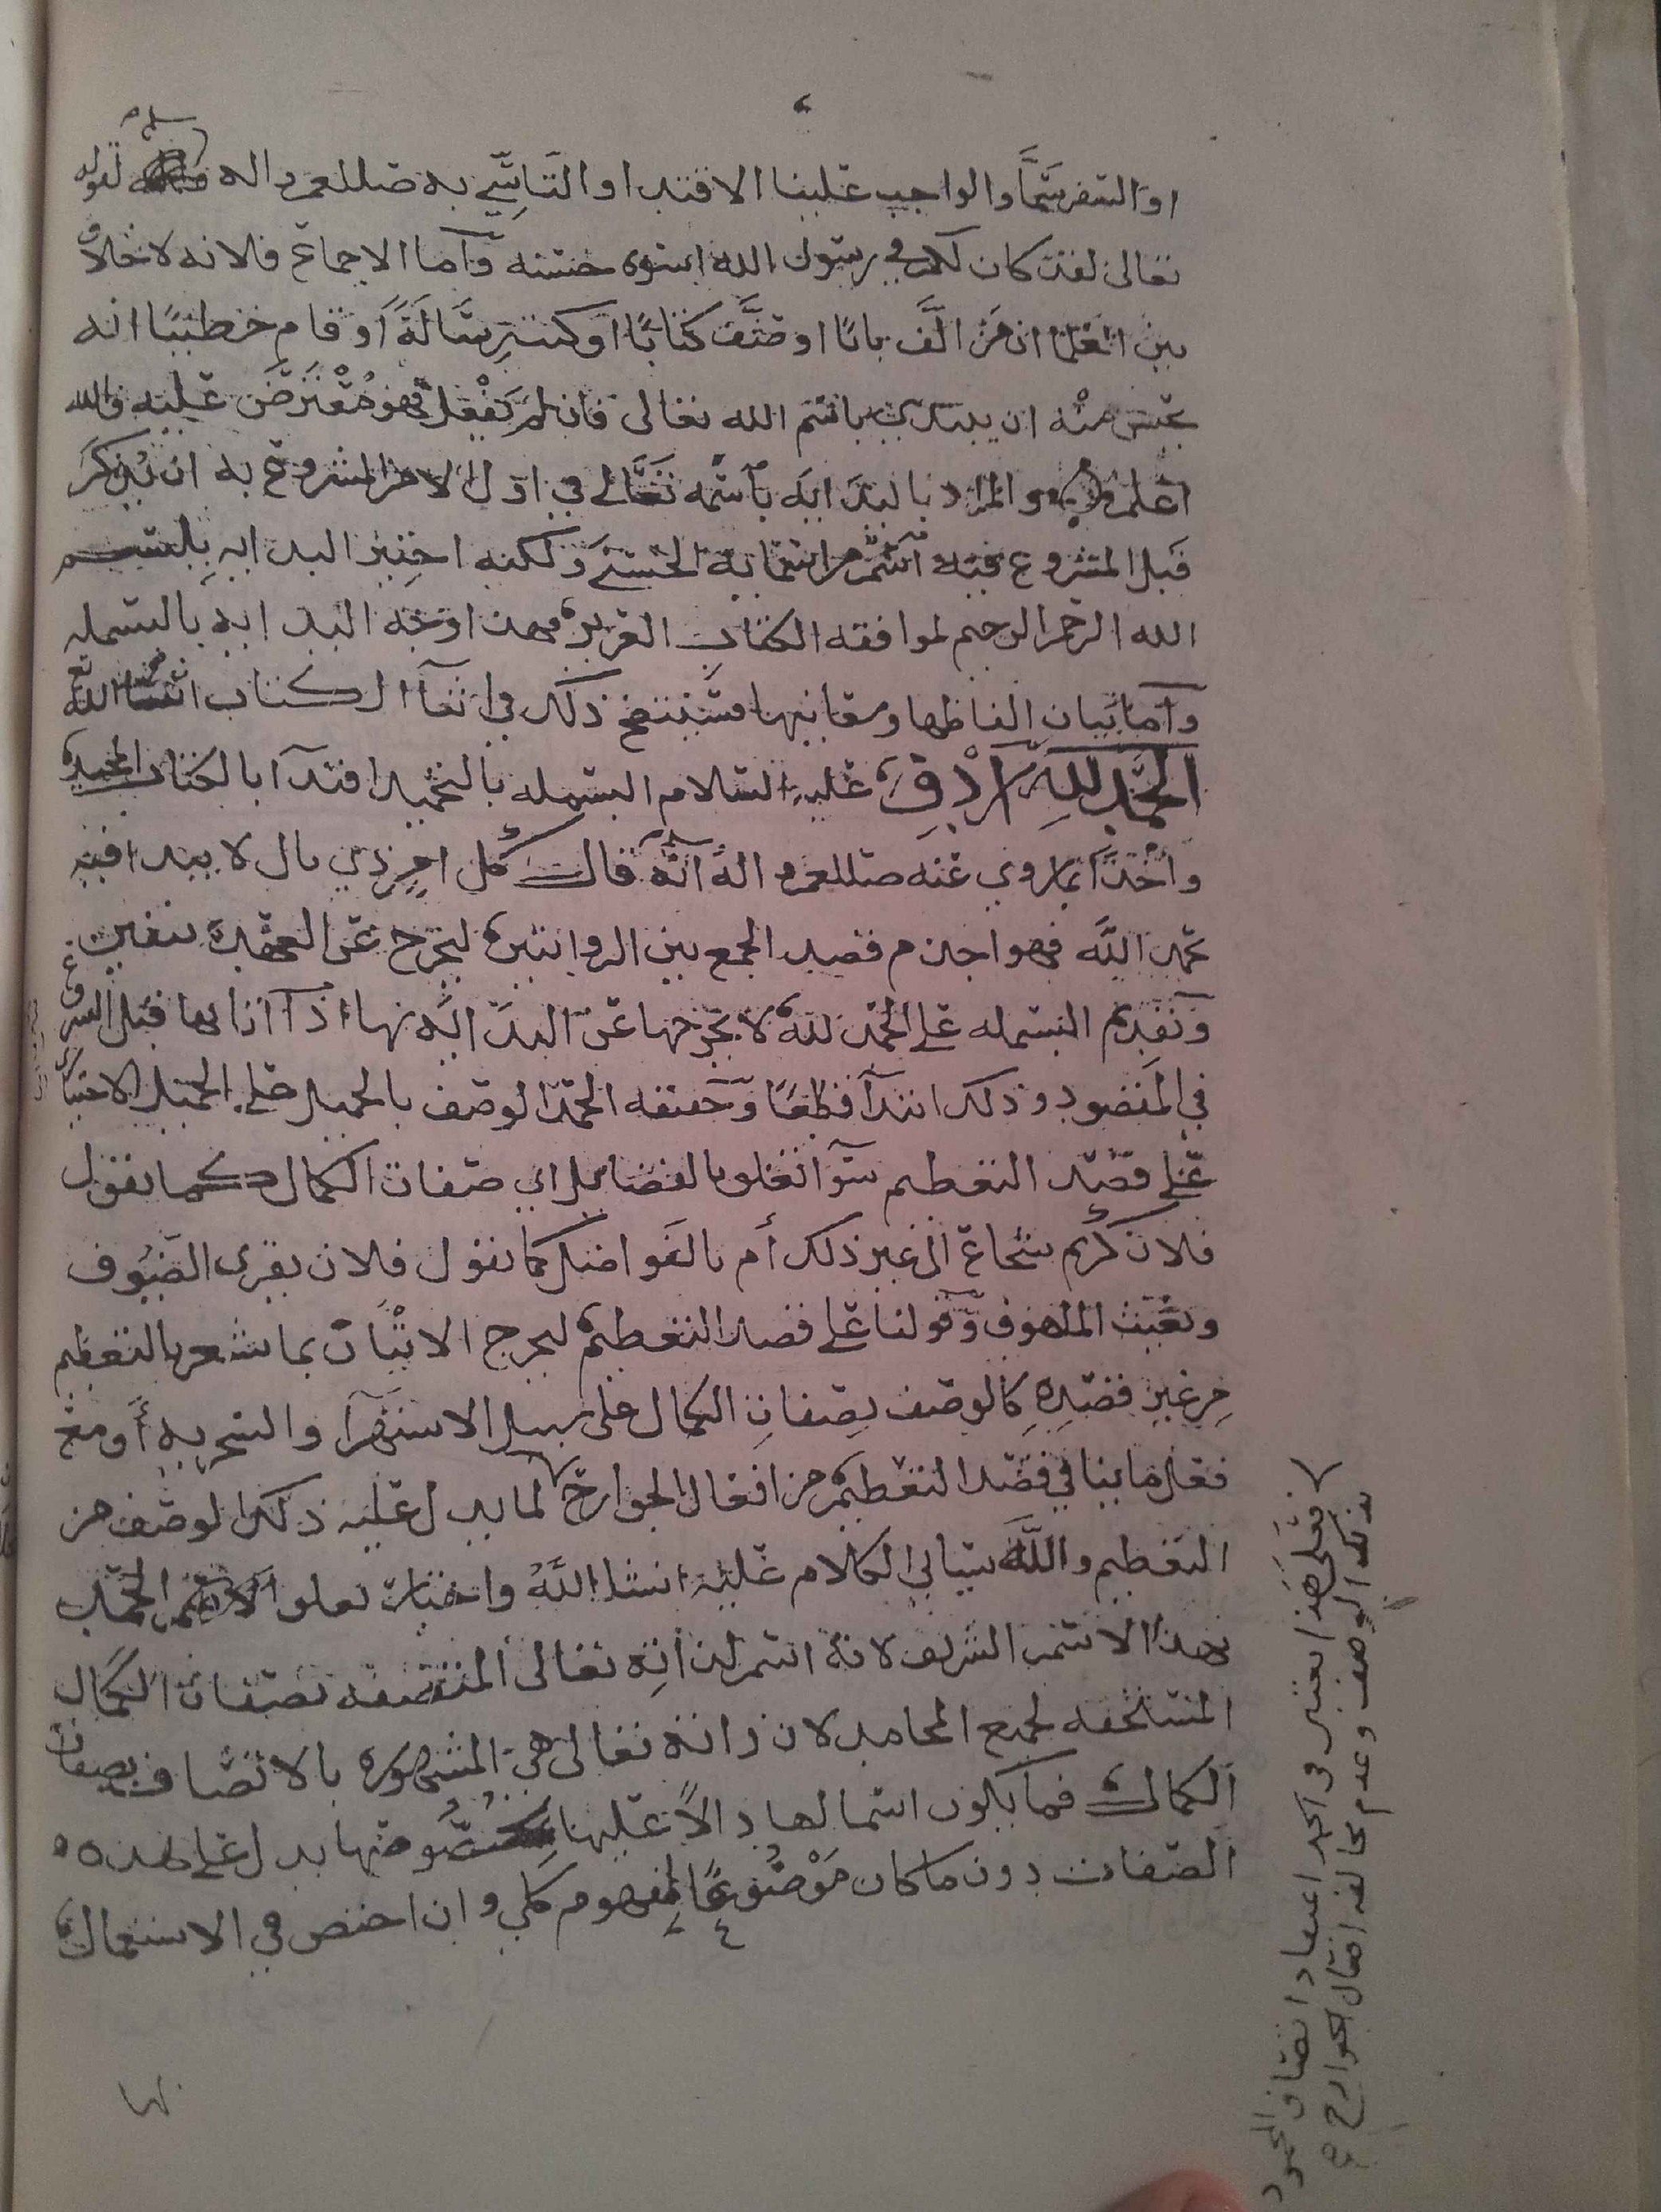 او السفر سما والواجب علينا الاقتدا والتاسي به صللعم واله وسلم لقوله
تعالى لقد كان لكم في رسول الله اسوة حسنه وأما الاجماع فلانه لا خلاف
بين العلما ان من الَّف بابًا او صنَّف كتابًا او كتب رسَالَةً أو قام خطيبًا انه
يحسن منْه ان يبتدي باسم الله تعالى فان لم يَفْعل فهو مُعْترَض عليه والله
اعلم والمراد بالبدايَه بأسمه تَعَالى في اول الامر المشروع به ان يُذكَر
قَبل الشروع فيه اسم من اسمائه الحسنَى ولكنه اختير البدايه بِبسم
الله الرحمن الرحيم لموافقه الكتاب العزيز فهذا وجه البدايه بالبسمله
وأما بَيان الفاظها ومعانيها فسَيتضح ذلك في اثنآ الكتاب انشا الله تع
الحَمْد للهِ أرْدفَ عليهِ السلام البسمله بالتحميد اقتدآ بالكتاب المجيد
وأخْذًا بما روي عنه صللعم واله أنَّه قال كُل امرٍ ذي بال لا يبدا فيه
بحمد الله فهو اجذم فقصد الجمع بين الروايتين ليخرج عن العهدة بيقين
وتقديم البسمله على الحمد لله لا يخرجها عن البدَايَه بها اذآ اتا بها قبل الشروع
في المقصود وذلك ابتدآ قطعًا وَحقيقه الحمد الوصف بالجميل على الجميل الاختياري
على قصْد التعظيم سوآ تعلق بالفضايل اي صفات الكمال كما يقول
فلان كريم شجاع الى غير ذلك أم بالفواضل كما يقول فلان يقري الضيُوف
ويغيث الملهوف وَقولنا على قصد التعظيم ليخرج الاتيْان بما يشعر بالتعظيم
مِن غيرِ قصْدِهِ كالوصف بصفاتِ الكمال على سبيل الاستهزآ والسخريه أو مع
فعل ما ينافي قصْد التعظيم من افعال الجوارح لما يدل عليه ذلك الوصف من
التعظيم والله سياتي الكلام عليه انشا اللَّهُ واختار تعلو الحمد
بهذا الاسم الشريف لانه اسم لذاتِه تعالى المتصفه بصفات الكمال
المستحقه لجميع المحامد لان ذاته تعالى هي المشهوره بالاتصاف بصفات
الكمال فما يكون اسما لها دالاً عليها بخصُوصها يدل على هذه
الصفات دون ما كان مَوْضُوعًا لمفهوم كلي وان اختص في الاستعمال
بها
فعلى هَذا يعتبر في الحمد اعتقاد اتصاف المحمود
بذلك الوصف وعدم مخالفه افعال الجوارح